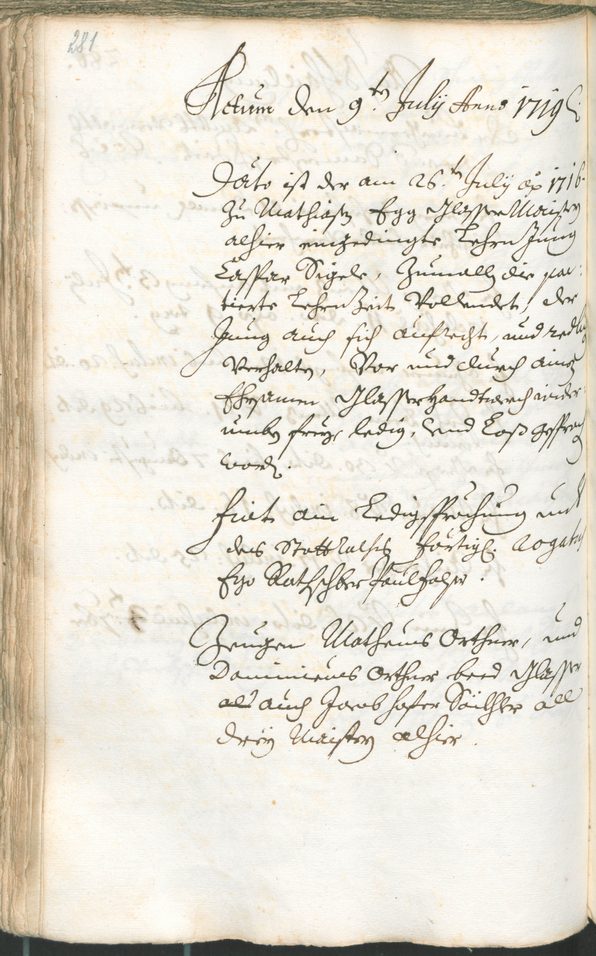 281
Actum den 9ten Julÿ Anno 1719
Dato ist der am 26ten Julÿ ao 1716
zu Mathiasen Egg Glasser Maistern
alhier eingedingte Lehrn Jung
Caspar Sigele, Zumalln die pac-
tierte Lehrn Zeit Vollendet, der
Jung auch sich aufrecht, und redlich
Verhalten, Vor und durch aines
Ehrsamen Glasser Handtwerch wider
umben freÿ, ledig, und Loß gesprochen
worden.
Fiat ain Ledigsprechung und
des Statt förtig: rogatus
Ego Rathschber Paul
Zeugen Matheus Orthner, und
Dominicus Orthner beed Glasser
als auch Jacob Sailler all
dreÿ Maister alhier.